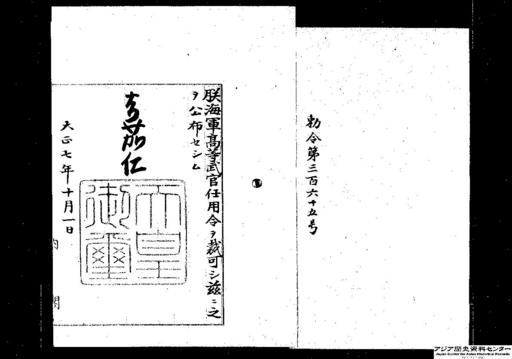 勅令第三百六十五号
朕海軍高等武官任用令ヲ裁可シ茲ニ之
ヲ公布セシム
嘉仁
天皇御璽
大正七年十月一日
内閣
アジア歴史資料センター
Japan Center for Asian Historical Records